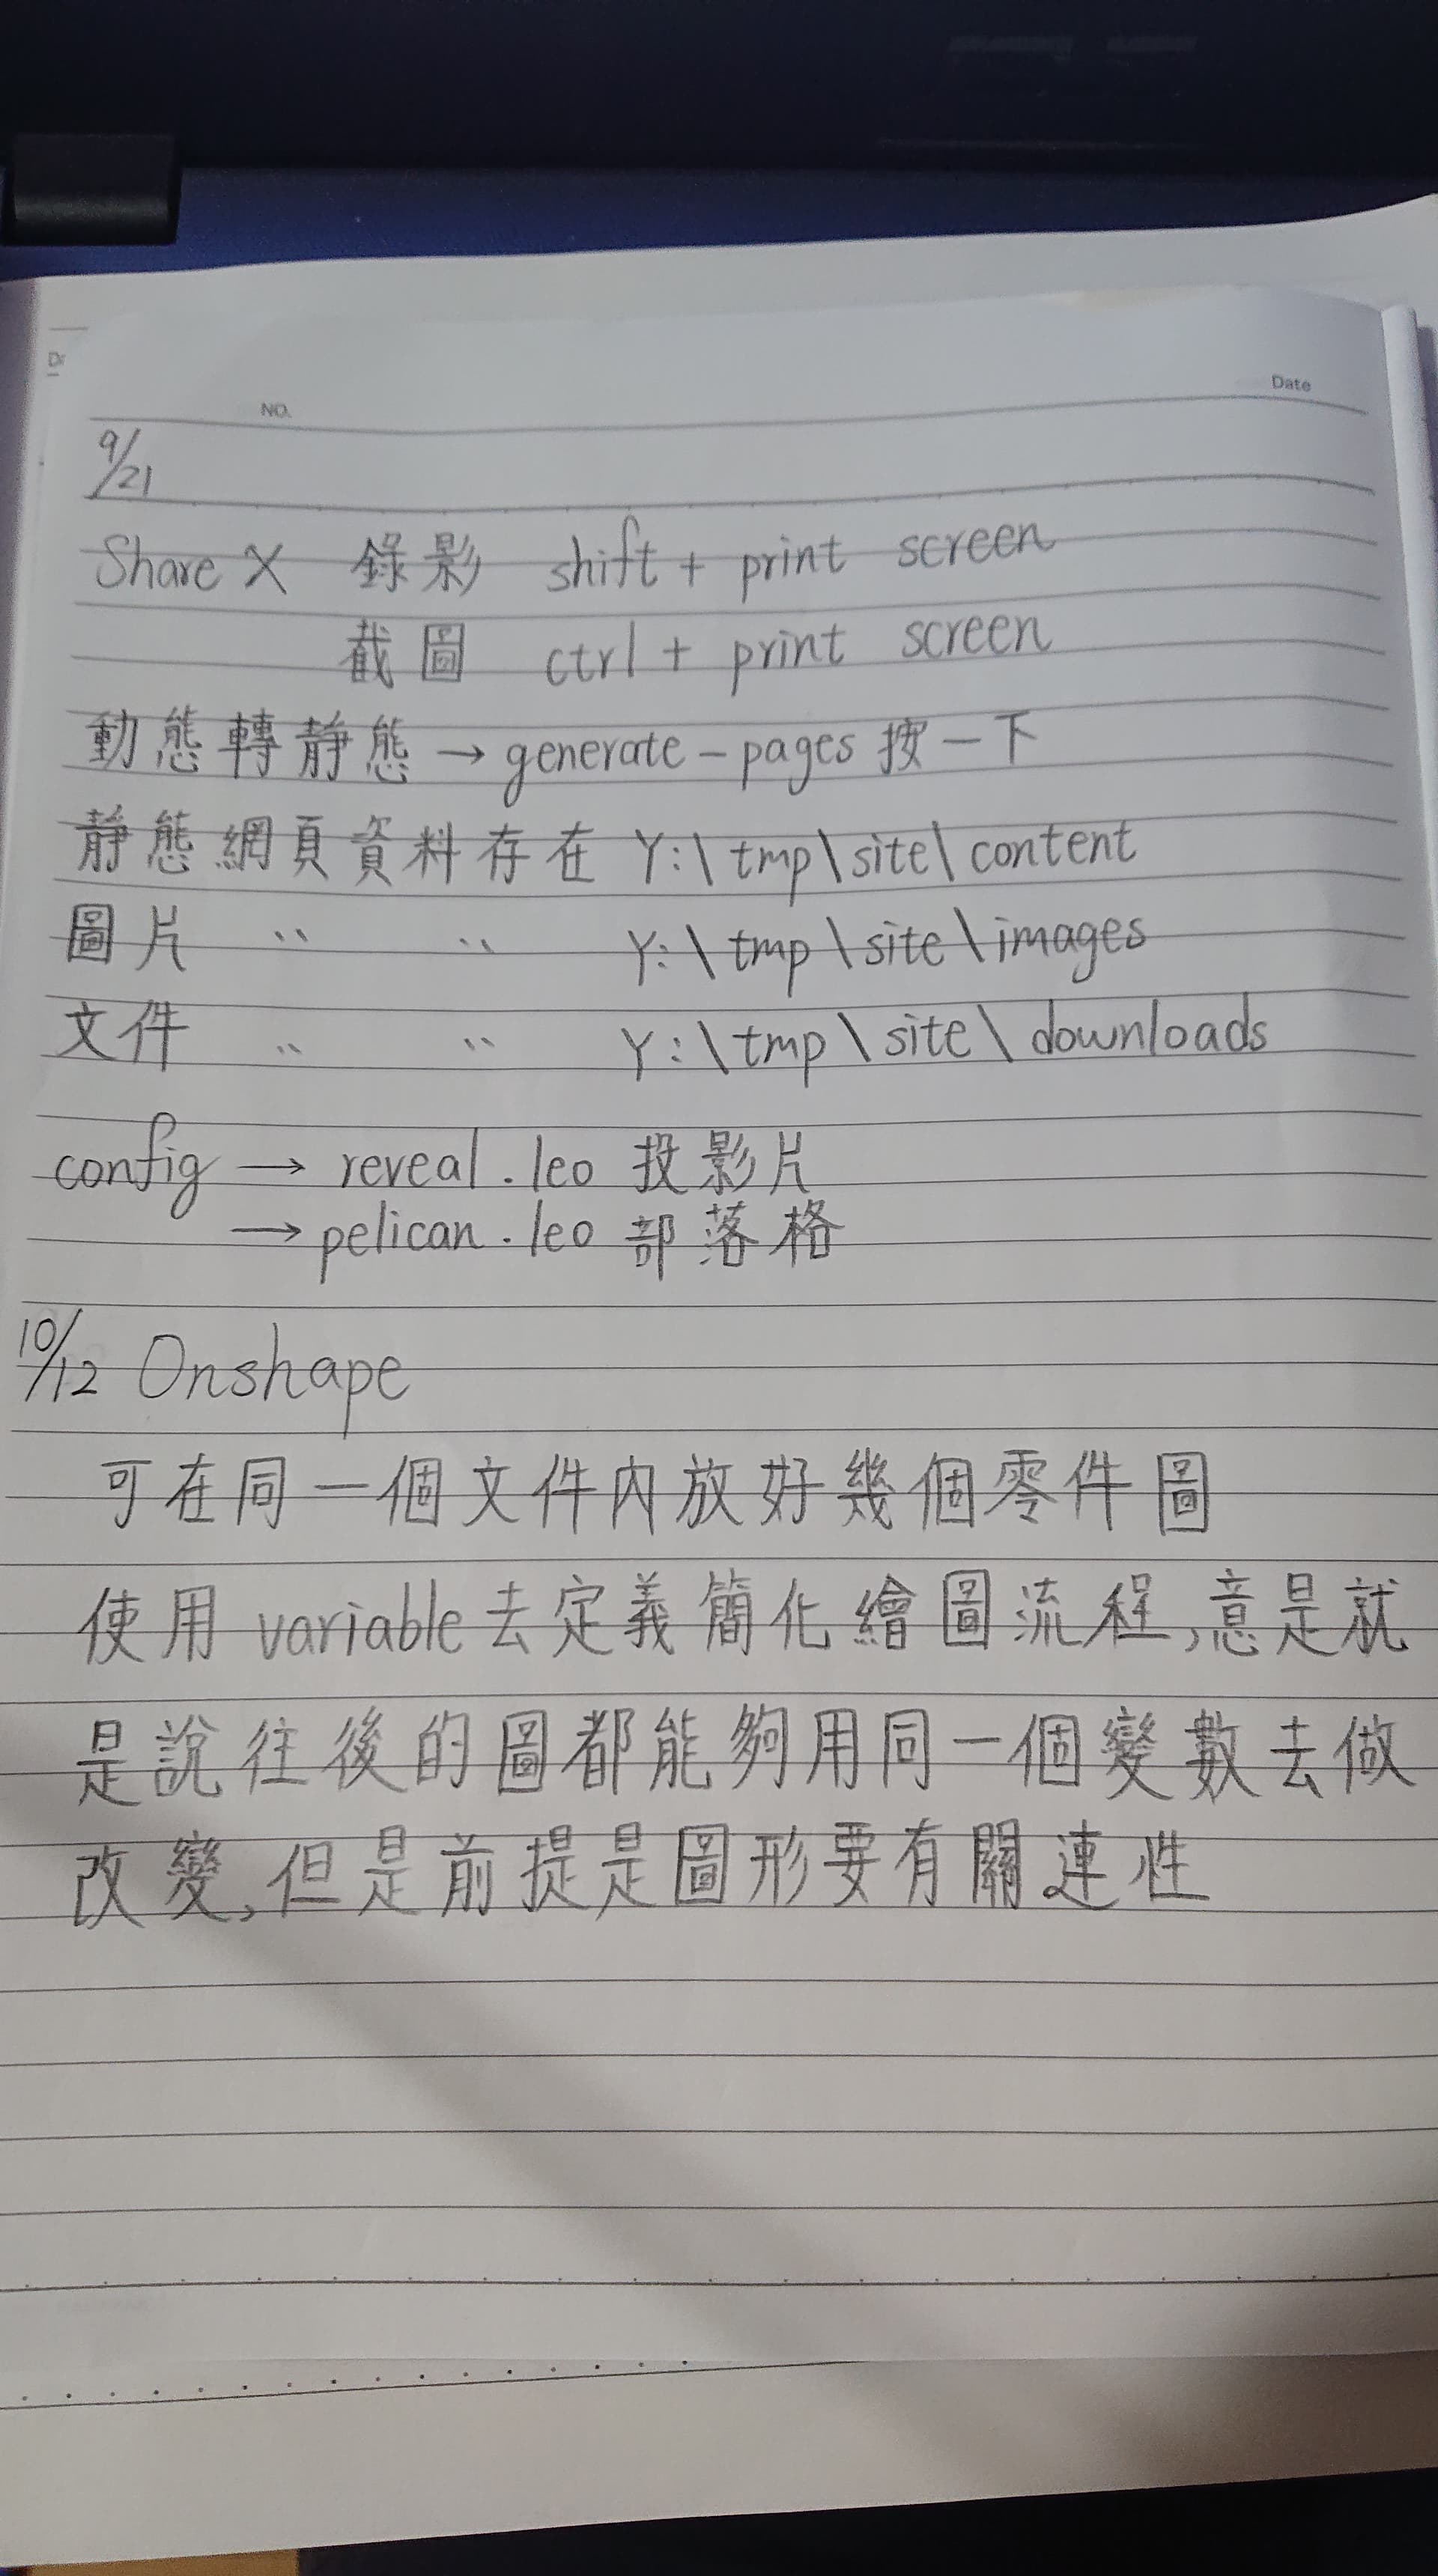 NO.
Date
9/21
ShareX 錄影 shift + print screen
截圖 ctrl + print screen
動態轉靜態 → generate-pages 按一下
靜態網頁資料存在 Y:\tmp\site\content
圖片 〃 〃 Y:\tmp\site\images
文件 〃 〃 Y:\tmp\site\downloads
config → reveal.leo 投影片
→ pelican.leo 部落格
10/12 Onshape
可在同一個文件內放好幾個零件圖
使用 variable 去定義簡化繪圖流程,意是就
是說往後的圖都能夠用同一個變數去做
改變,但是前提是圖形要有關連性